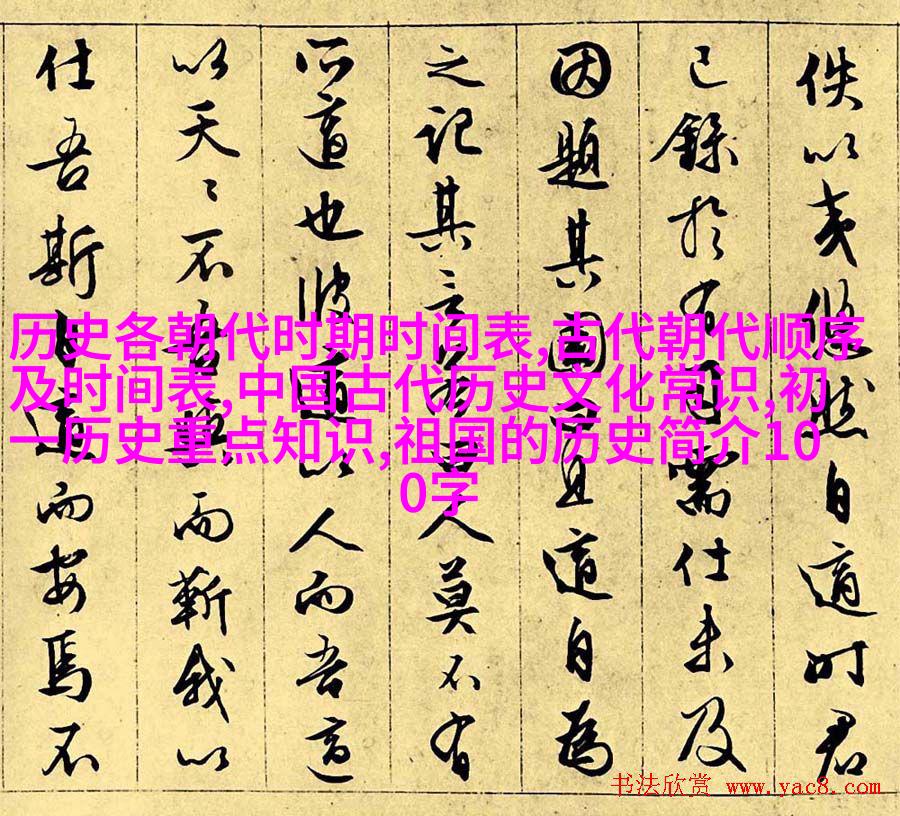 佚以夷悠然自適时君
已錄於有司需仕未及
因題其自適自為
之記其言人莫不有
所適也彼適以人而吾適
以天〻不吾而蘄我以
仕吾斯而安焉不
历史各朝代时期时间表,古代朝代顺序
及时间表,中国古代历史文化常识,初
一历史重点知识,祖国的历史简介10
0字
书法欣赏 www.yac8.com